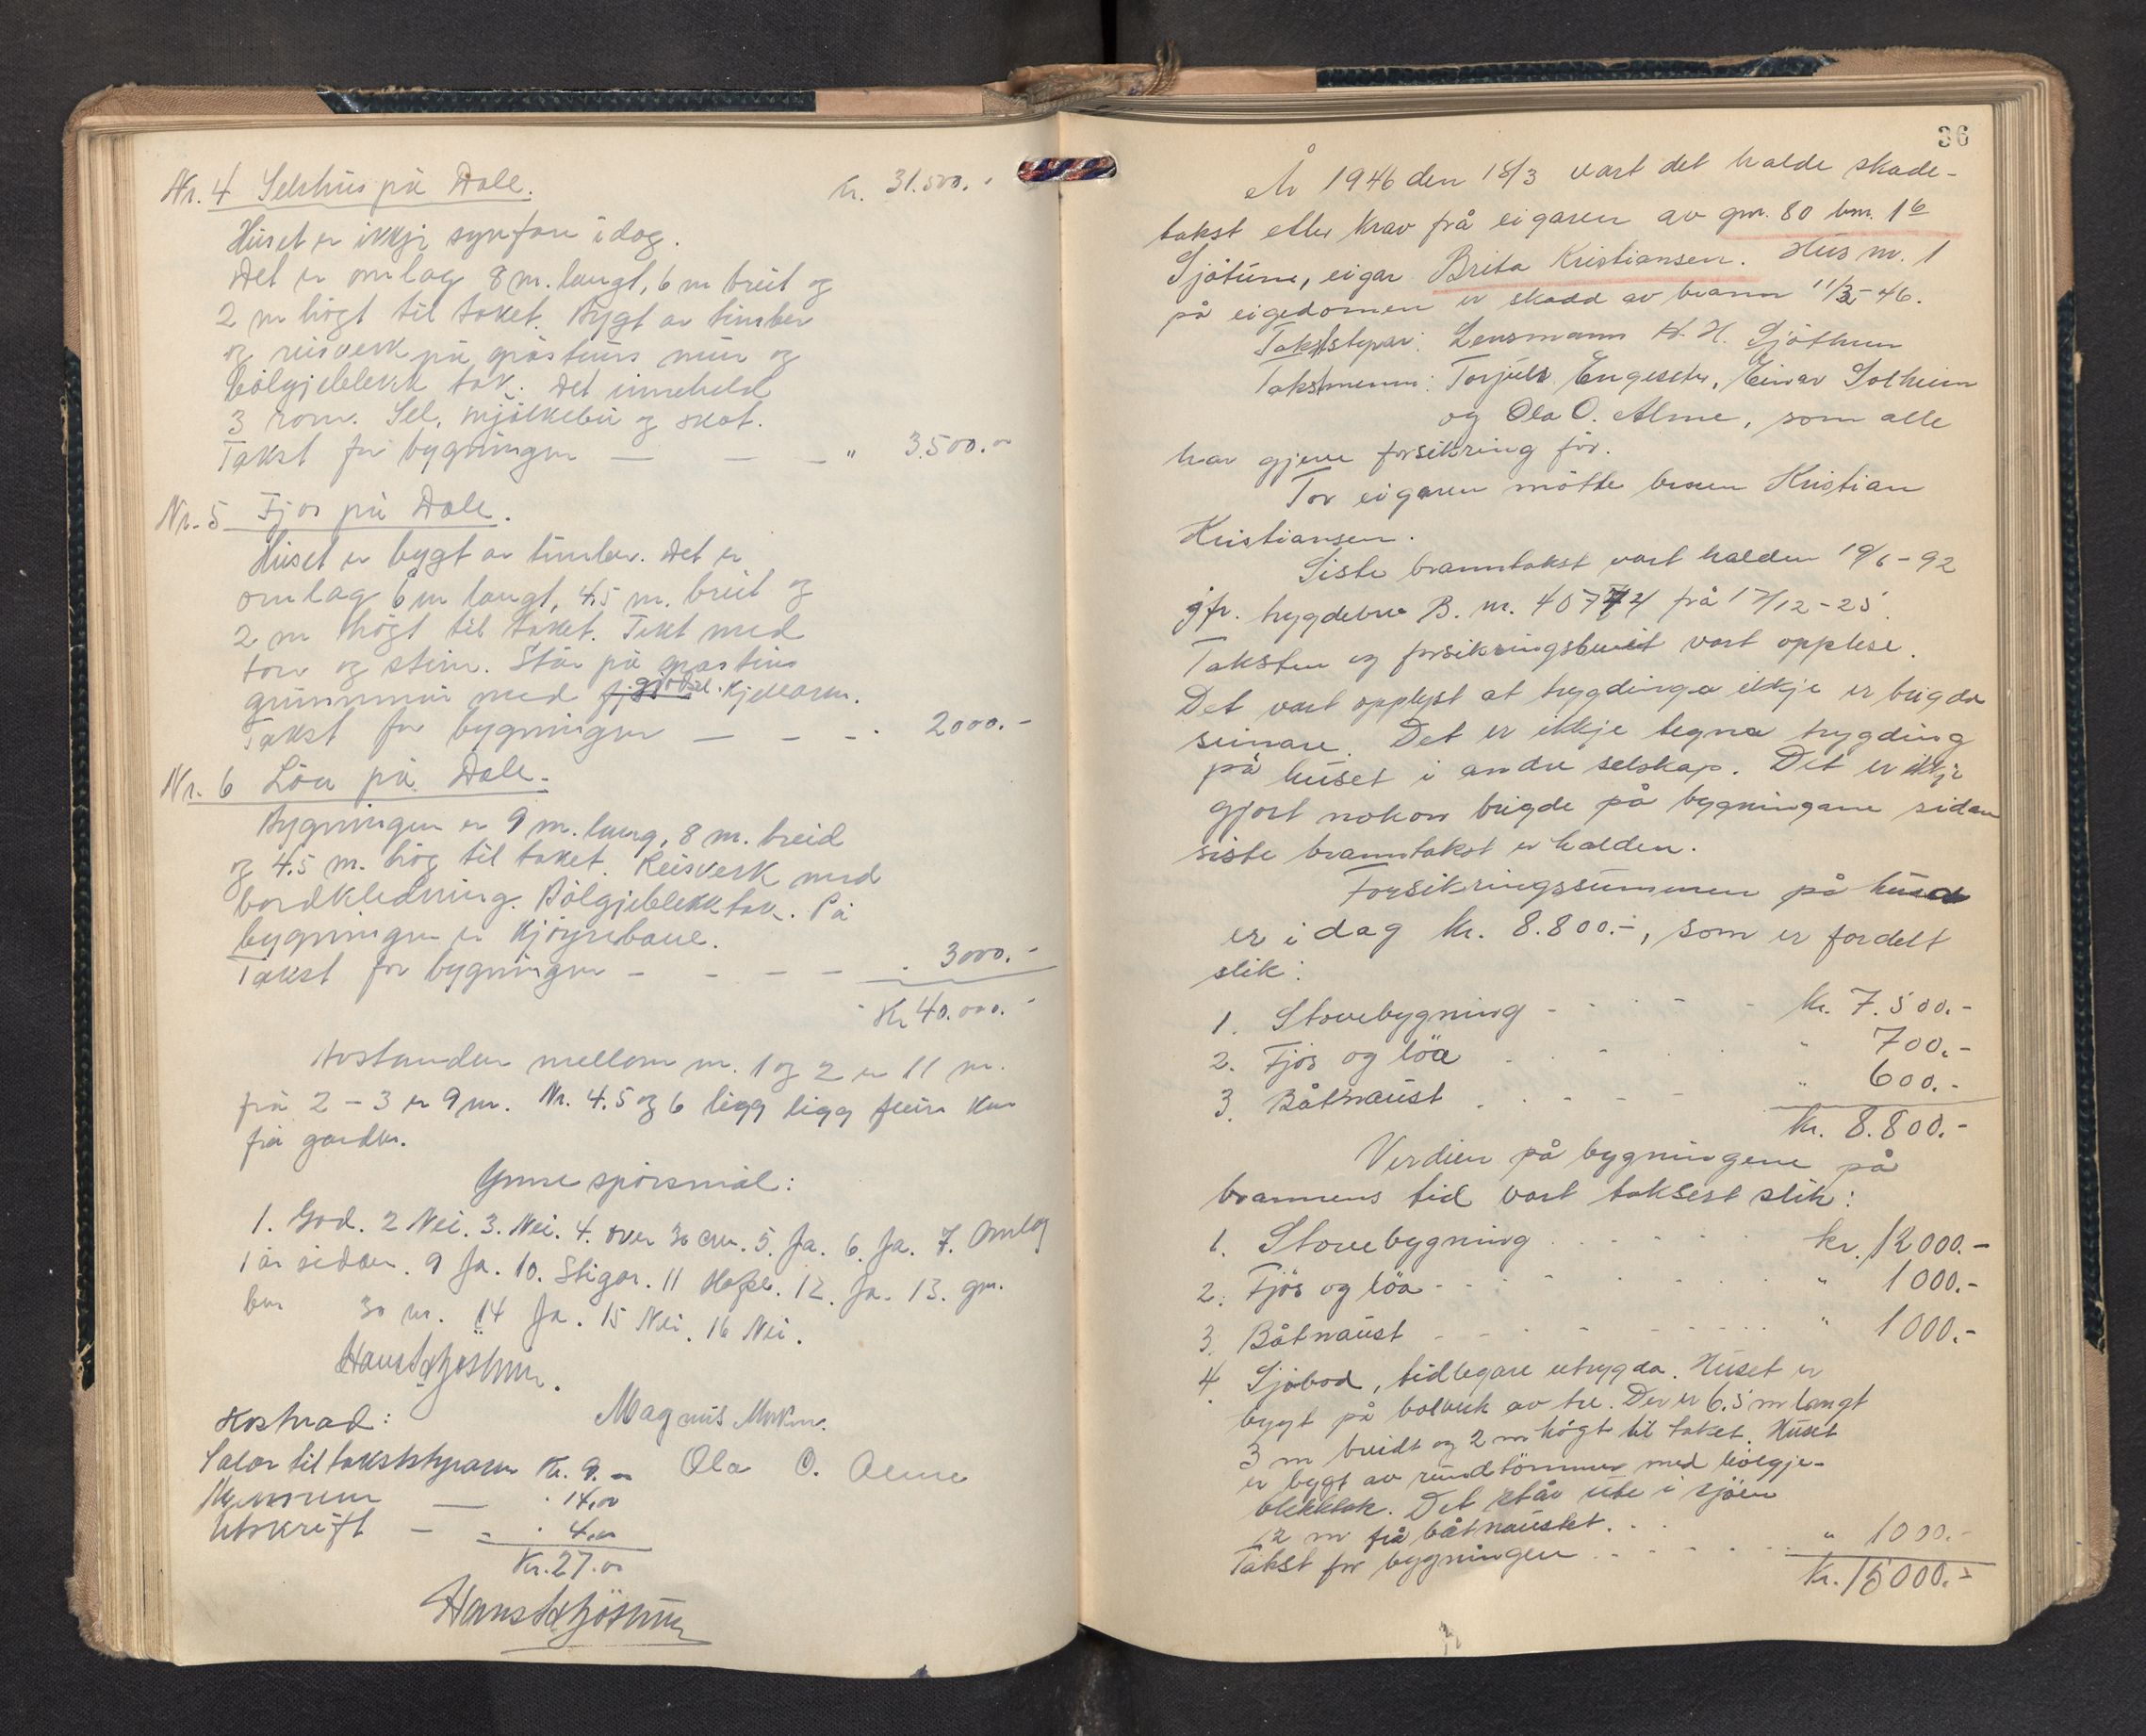 Nr. 4 Selshus på Dale. Kr. 31.500.-
Huset er ikkje synfare idag.
Det er omlag 8 m. langt, 6 m breit og
2 m högt til taket. Bygt av timber
og reisverk på gråsteins mur og
bölgjeblekk tak. Det inneheld
3 rom. Sel, mjölkebu og skot.
Takst for bygningen — — — " 3.500.-
Nr. 5 Fjos på Dale.
Huset er bygt av timber. Det er
omlag 6 m langt, 4,5 m. breit og
2 m högt til taket. Tekt med
torv og stein. Står på gråsteins
grunnmur med gjödsel. kjellarm.
Takst for bygningen — — - . 2000.-
Nr. 6 Löa på Dale.
Bygningen er 9 m. lang, 8 m. breid
og 4.5 m. hög til taket. Reisverk med
bordkledning. Bölgjeblekktak. På
bygningen er kjöyrebaue.
Takst for bygningen - - - - . 3000.-
Kr 40.000.-
Avstanden mellom nr. 1 og 2 er 11 m.
frå 2 - 3 er 9 m. Nr. 4.5 og 6 ligg ligg fleire km
frå garden.
Ymse spörsmål:
1. God. 2 Nei. 3. Nei. 4. over 30 cm. 5. Ja. 6. Ja. 7. Omlag
1 år sidan. 9 Ja. 10. Stigar. 11 12. Ja. 13. gm.
30 m. 14 Ja. 15 Nei. 16 Nei.
Hans H Sjöthun.
Kostnad: Magnus
Salar til takststyraren Kr. 9.- Ola O. Alme
Mennene — . 14,00
Utskrift - = . 4,00
Kr. 27.00
Hans H Sjöthun
36
År 1946 den 18/3 vart det halde skade-
takst etter krav frå eigaren av gnr. 80 bnr. 16
Sjötune, eigar Brita Kristiansen. Hus nr. 1
på eigedomen er skadd av brann 11/3-46.
Takststyrar: Lensmann H. H. Sjöthun
Takstmenn: Torjuls Engeseter, Einar Solheim
og Ola O. Alme, som alle
har gjeve forsikring för.
For eigaren mötte broren Kristian
Kristiansen.
Siste branntakst vart halden 19/6-92
jfr. trygdebrev B. nr. 40774 frå 17/12-25.
Taksten og forsikringsbeviset vart opplese.
Det vart opplyst at trygdinga ikkje er brigda
seinare. Det er ikkje tegna trygding
på huset i andre selskap. Det er ikkje
gjort nokon brigde på bygningane sidan
siste branntakst er halden.
Forsikringssummen på husa
er i dag kr. 8.800.-, som er fordelt
slik:
1. Stovebygning - - - - kr. 7.500.-
2. Fjös og löa . . - . . " 700.-
3. Båtnaust . . . - - " 600.-
kr. 8.800.-
Verdien på bygningene på
brannens tid vart taksert slik:
1. Stovebygning . . . . . . kr. 12000.-
2. Fjös og löa - - - - . . . " 1000.-
3. Båtnaust - - - - - - . . . " 1000.-
4 Sjöbod, tidlegare utrygda. Huset er
bygt på bolverk av tre. Det er 6.5 m langt
3 m breidt og 2 m högt til taket. Huset
er bygt av rundtömmer med bölgje-
blekktak. Det står ute i sjöen
12 m frå båtnaustet. . .
Takst for bygningen . . - . - . . " 1000.-
Kr. 15000.-